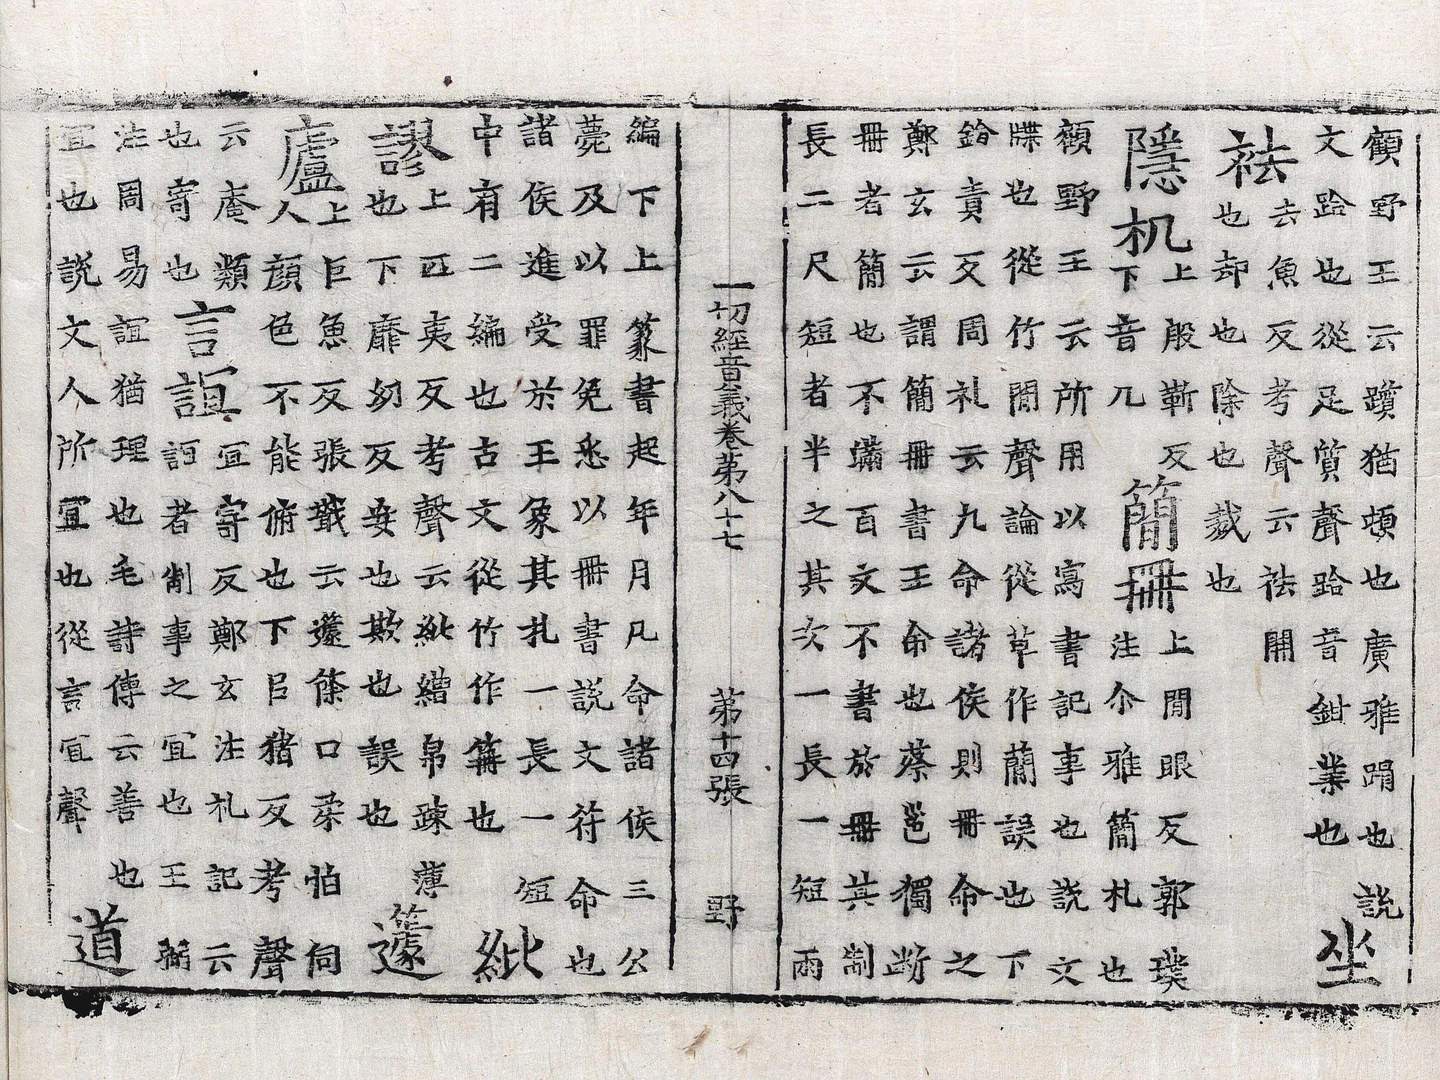 顧野王云躓猶頓也廣雅䠊也説
文跲也從足質聲跲音鉗業也
坐
祛
去魚反考聲云祛開
也却也除也裁也
隱机
上殷靳反
下音几
簡冊
上閒眼反郭璞
注尒雅簡札也
顧野王云所用以寫書記事也説文
牒也從竹閒聲論從草作蕳誤也下
鎗責反周礼云九命諸侯則冊命之
鄭玄云謂簡冊書王命也蔡邕獨断
冊者簡也不滿百文不書於冊其制
長二尺短者半之其次一長一短兩
一切經音義卷第八十七 第十四張 野
編下上篆書起年月凡命諸侯三公
薨及以罪免悉以冊書説文符命也
諸侯進受於王象其札一長一短
中有二編也古文從竹作笧也
紕
謬
上匹夷反考聲云紕繒帛疎薄
也下靡幼反妄也欺也誤也
籧
廬
上巨魚反張戩云籧篨口柔怕伺
人顔色不能俯也下呂猪反考聲
云庵類
也寄也
言誼
宜寄反鄭玄注札記云
誼者制事之宜也王弼
注周易誼猶理也毛詩傳云善也
宜也説文人所宜也從言宜聲
道